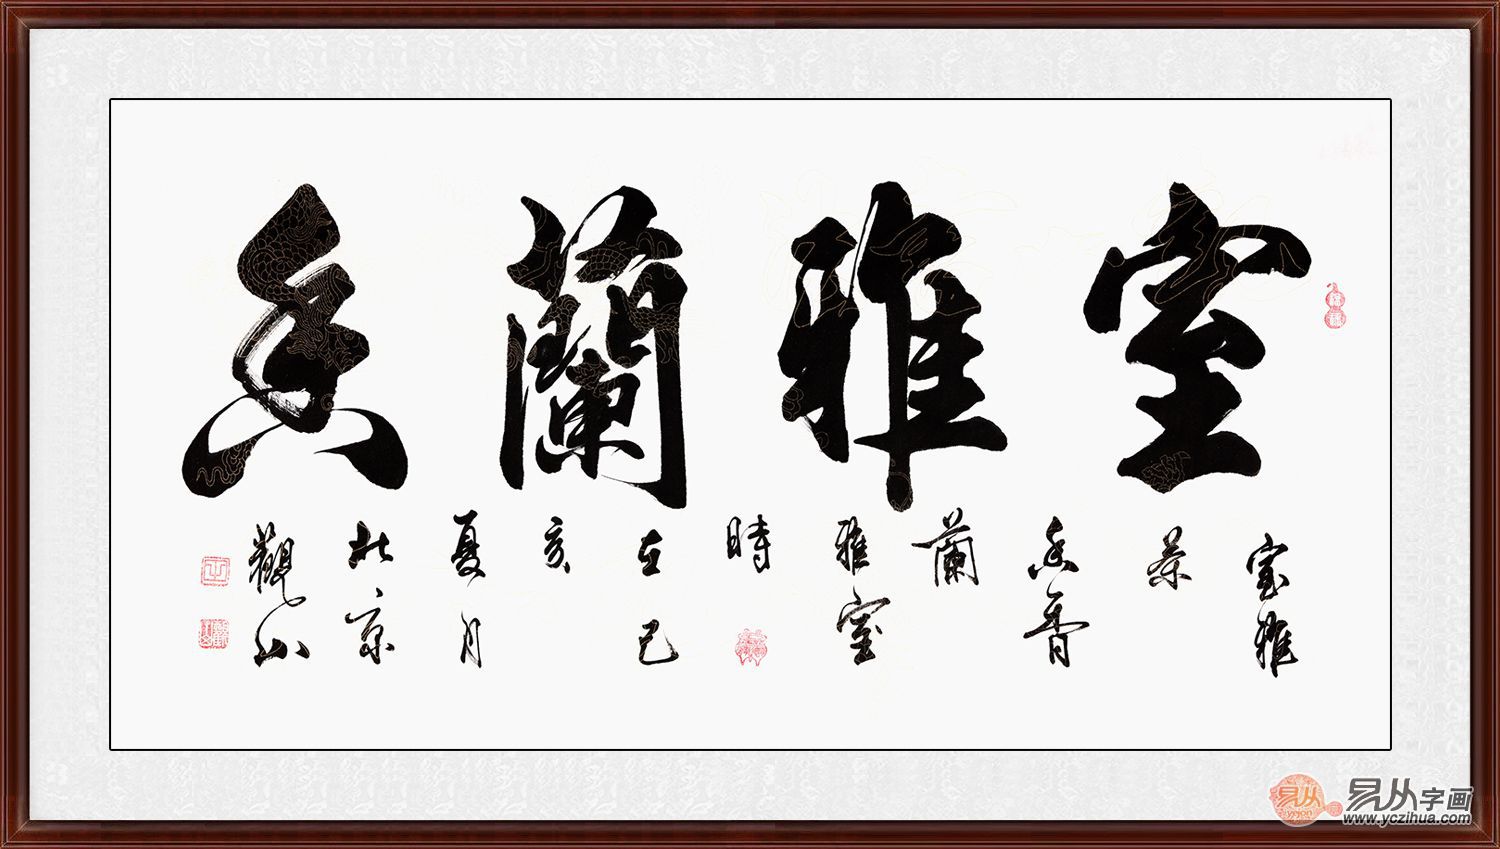 室雅蘭香
室雅
茶
香
蘭
雅室
時
在己
亥
夏月
北京
觀山
易从字画
www.yczihua.com